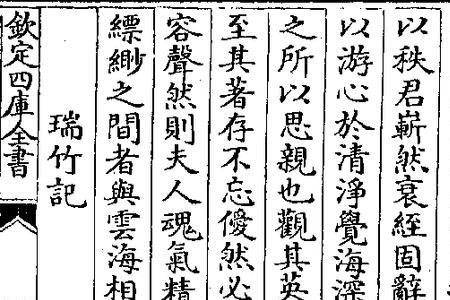 以秩君嶄然衰絰固辭
以游心於清淨覺海深
之所以思親也觀其英
至其著存不忘僾然必
容聲然則夫人魂氣精
縹緲之間者與雲海相
瑞竹記
欽定四庫全書